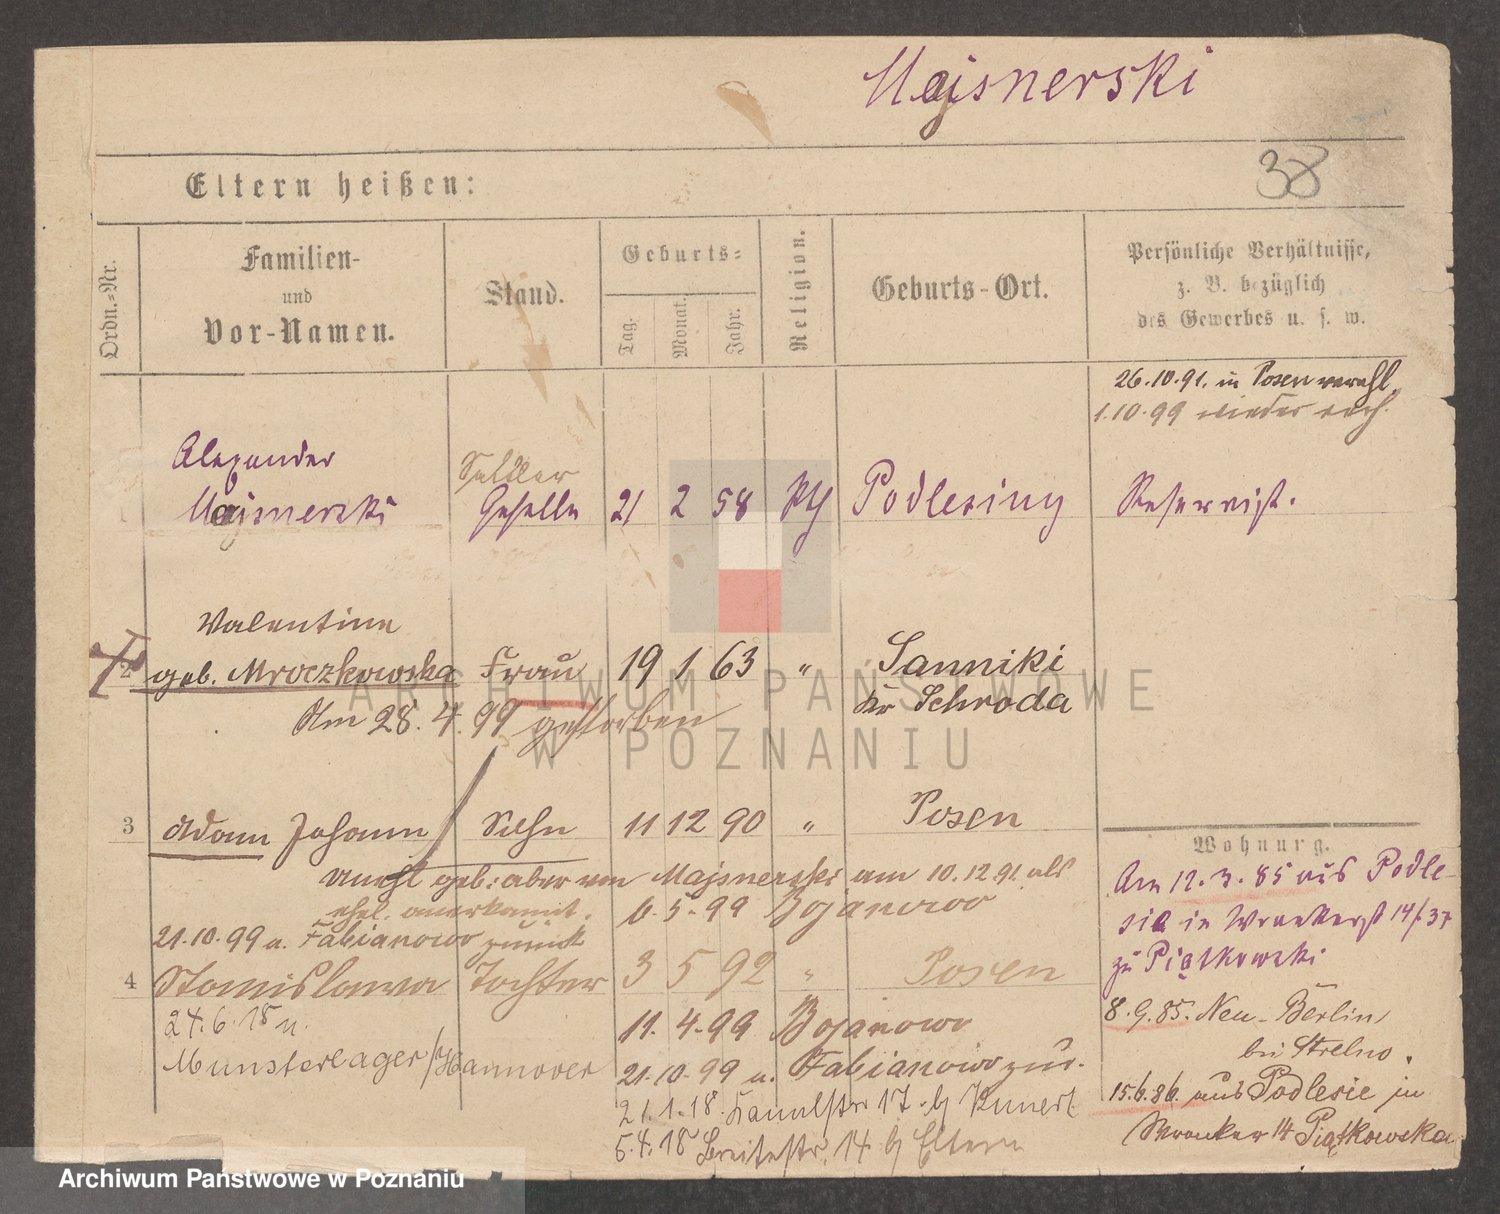 Majsnerski
Eltern heißen:
38
Ordn.-Nr.
Familien-
und
Vor-Namen.
Stand.
Geburts-
Tag.
Monat.
Jahr.
Religion.
Geburts-Ort.
Persönliche Verhältnisse,
z. B. bezüglich
des Gewerbes u. s. w.
26.10.91. in Posen verehl.
1.10.99 wieder verh.
Alexander
Majsnerski
Sattler
Geselle
21 2 58 kth Podlesiny
Reservist.
Valentine
2 geb. Mroczkowska Frau 19 1 63 " Sanniki
Kr Schroda
Am 28.4.99 gestorben
3 Adam Johann Sohn 11 12 90 " Posen
unehl geb: aber von Majsnerski am 10.12 91 als
ehel. anerkannt.
6-5-99 Bojanowo
21.10.99 a. Fabianowo zurück
4 Stanislawa Tochter 3 5 92 " Posen
24.6.18 n.
Munsterlager/Hannover
11.4-99 Bojanowo
21-10-99 a. Fabianowo zur.
21.1.18. 17 b/ Kunert
5.4.18 Breitestr. 14 b/ Eltern
Wohnung.
Am 12.3.85 aus Podle-
sie in Wronkerst 14/37
zu Piątkowski
8.9.85. Neu-Berlin,
bei Strelno.
15.6.86. aus Podlesie in
Wronker 14 Piątkowska
ARCHIWUM PAŃSTWOWE
W POZNANIU
Archiwum Państwowe w Poznaniu